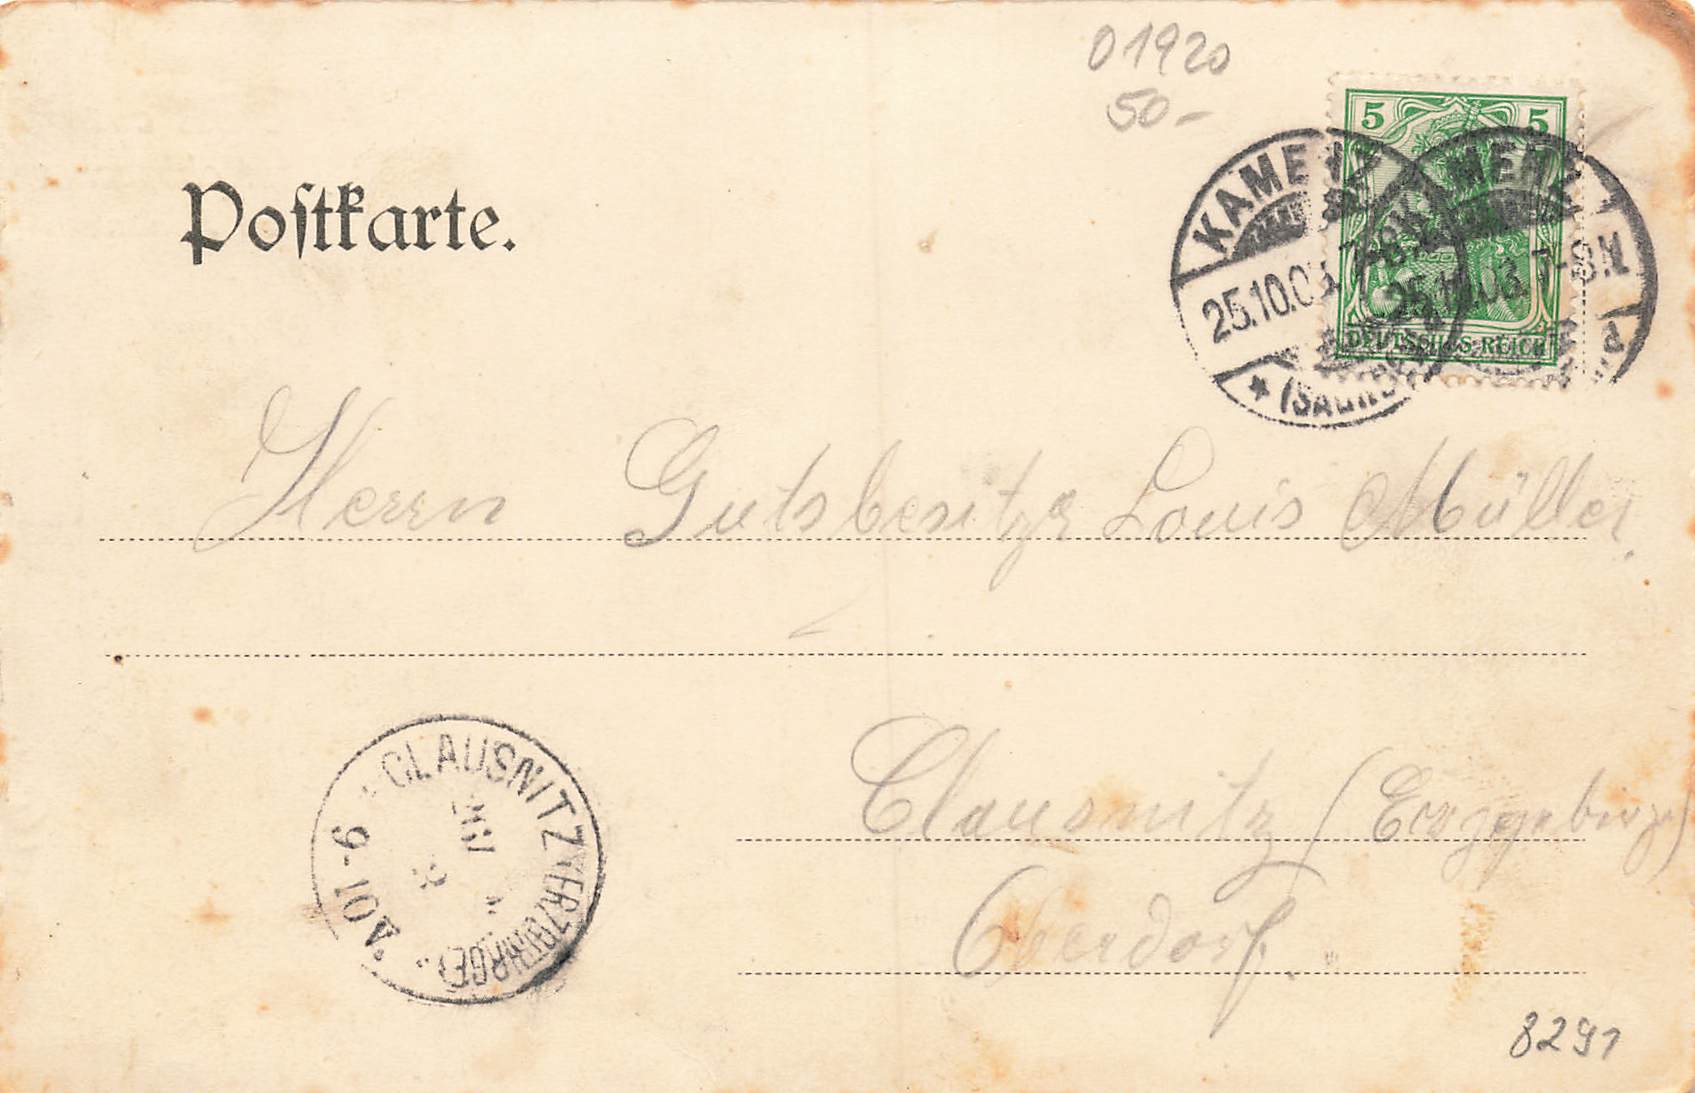 01920
50-
5 5
DEUTSCHES REICH
KAMENZ
25.10.03. 7-8N.
* (SACHSEN)
KAMENZ
25.10.03. 7-8N
Postkarte.
Herrn Gutsbesitzer Louis Müller.
Clausnitz (Erzgebirge)
Oberdorf.
CLAUSNITZ (ERZGEBIRGE)
9-10V.
8291